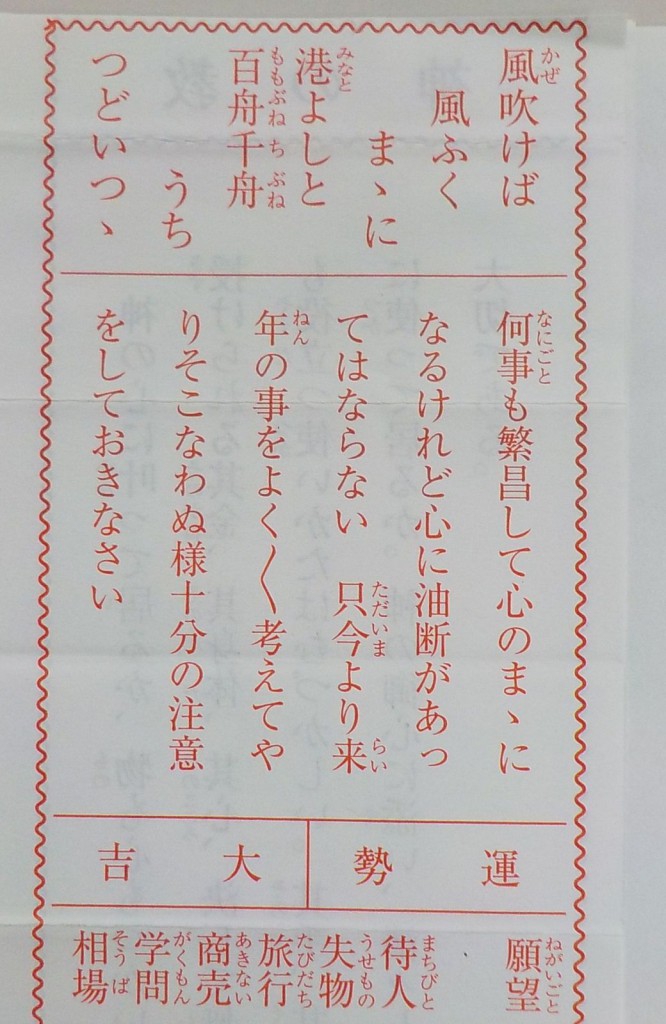 風吹けば
風ふく
まゝに
港よしと
百舟千舟
うち
つどいつゝ
何事も繁昌して心のまゝに
なるけれど心に油断があっ
てはならない　只今より来
年の事をよく〱考えてや
りそこなわぬ様十分の注意
をしておきなさい
運勢
大吉
願望
待人
失物
旅行
商売
学問
相場